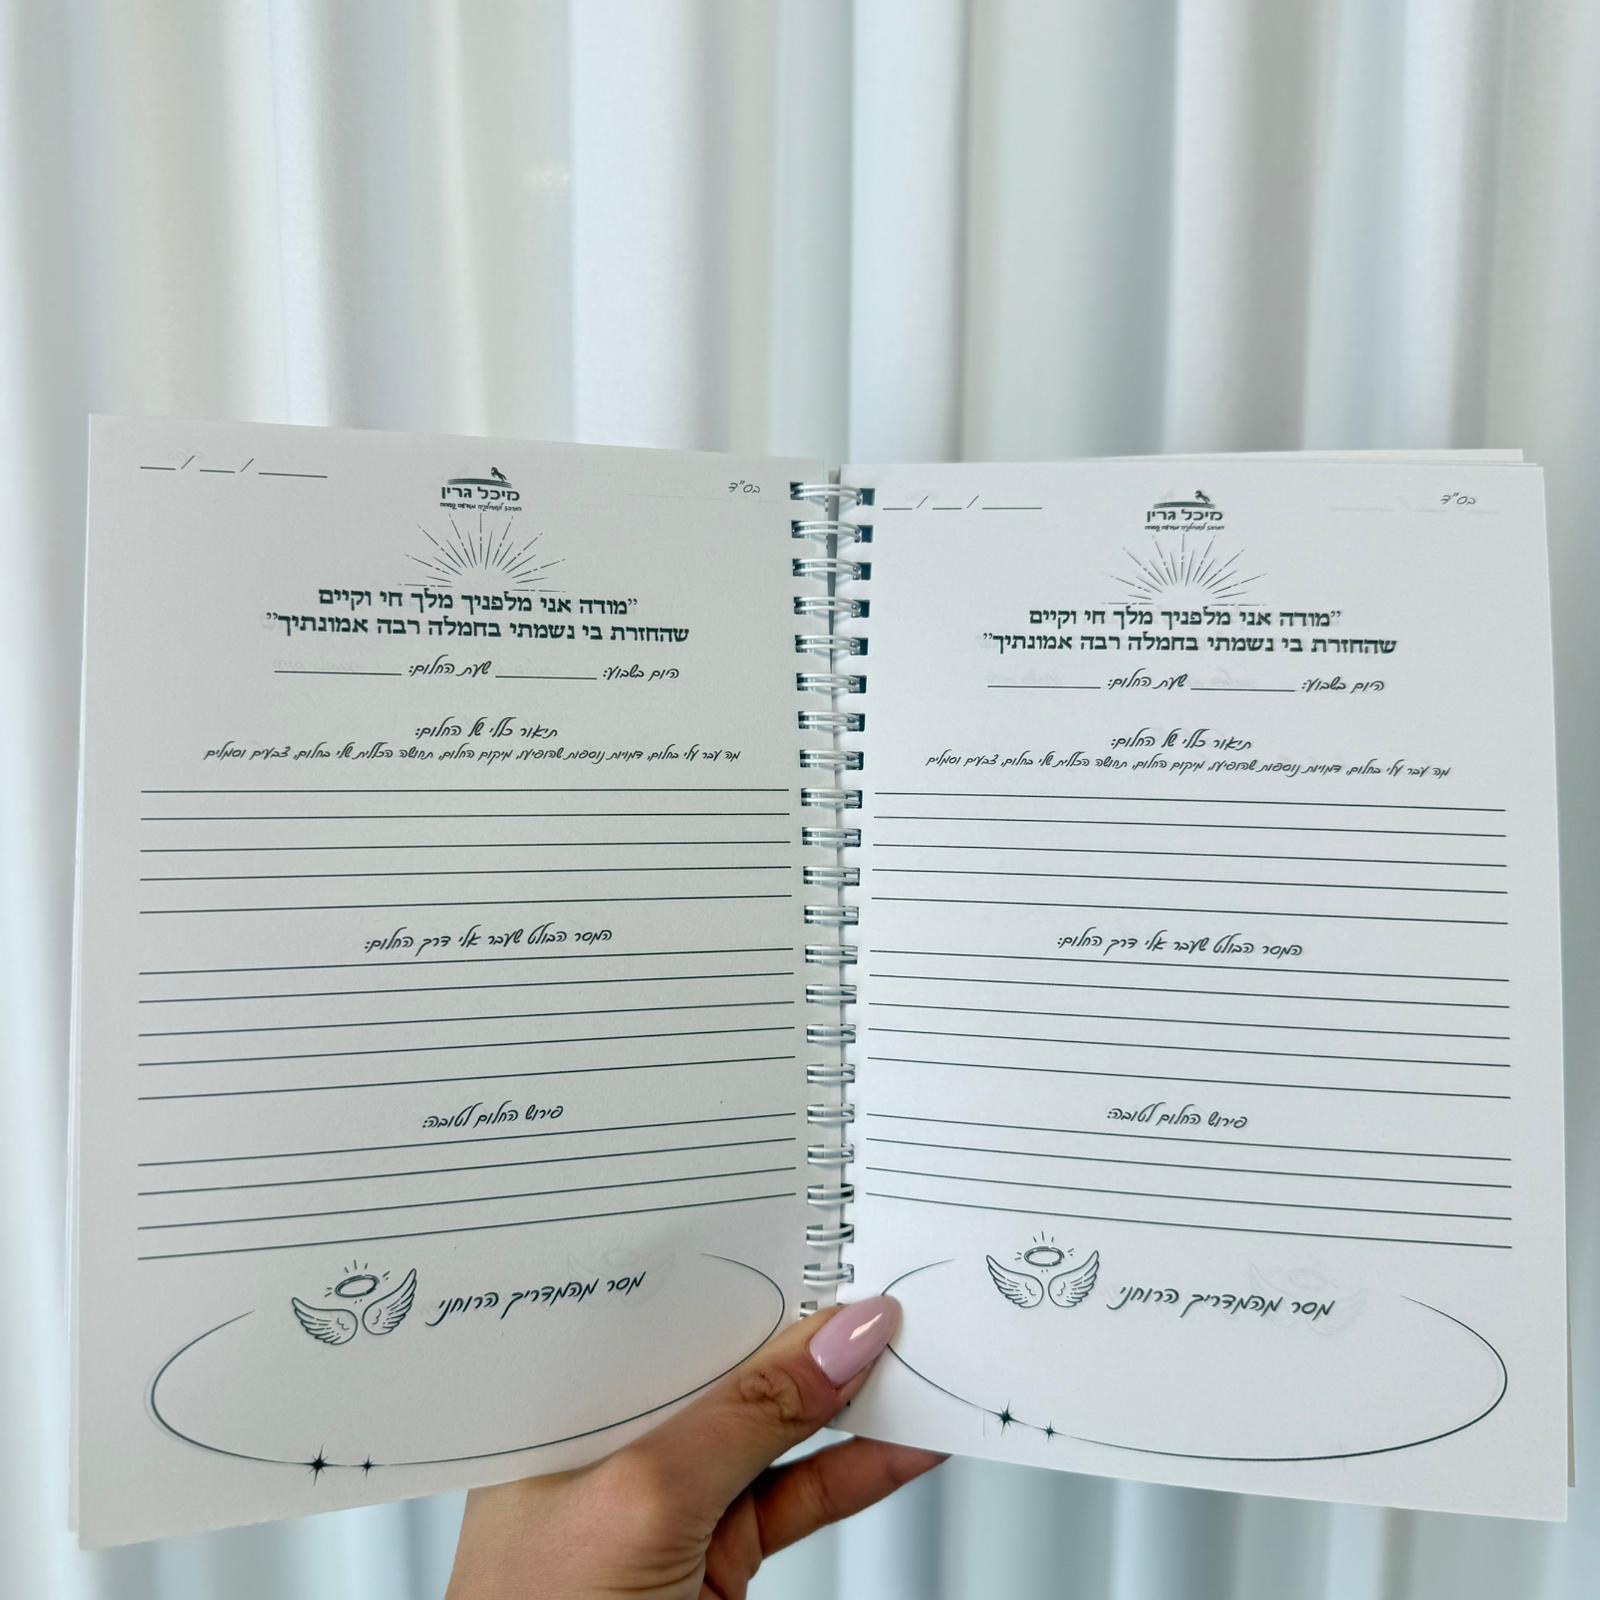 בס"ד
__/__/____
מיכל גרין
"מודה אני מלפניך מלך חי וקיים
שהחזרת בי נשמתי בחמלה רבה אמונתיך"
היום בשבוע: __________ שעת החלום: __________
תיאור כללי של החלום:
מה עבר עלי בחלום, דמויות נוספות שהופיעו, מיקום החלום, תחושה הכללית שלי בחלום, צבעים וסמלים
המסר הבולט שעבר אלי דרך החלום:
פירוש החלום לטובה:
מסר מהמדריך הרוחני
בס"ד
__/__/____
מיכל גרין
"מודה אני מלפניך מלך חי וקיים
שהחזרת בי נשמתי בחמלה רבה אמונתיך"
היום בשבוע: __________ שעת החלום: __________
תיאור כללי של החלום:
מה עבר עלי בחלום, דמויות נוספות שהופיעו, מיקום החלום, תחושה הכללית שלי בחלום, צבעים וסמלים
המסר הבולט שעבר אלי דרך החלום:
פירוש החלום לטובה:
מסר מהמדריך הרוחני